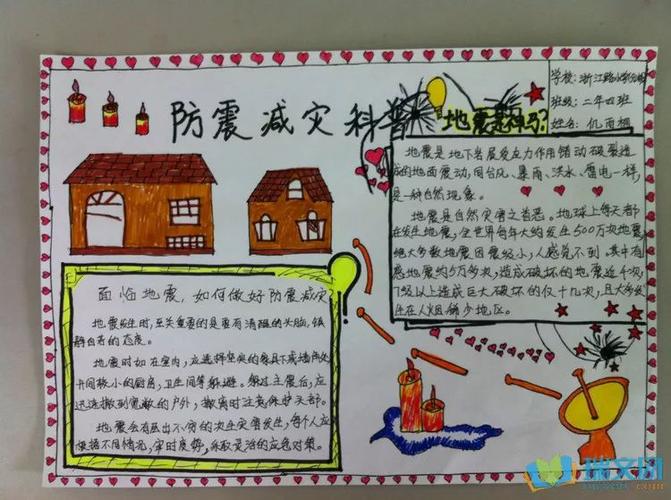 防震减灾科普
地震是神马?
学校:浙江路小学分校
班级:二年四班
姓名:仉雨桐
地震是地下岩层受应力作用错动破裂造
成的地面震动,同台风、暴雨、洪水、雷电一样,
是一种自然现象。
地震是自然灾害之首恶。地球上每天都
在发生地震,全世界每年大约发生500万次地震,
绝大多数地震因震级小,人感觉不到。其中有
感地震约5万多次,造成破坏的地震近千次,
7级以上造成巨大破坏的仅十几次,且大多数
在人烟稀少地区。
面临地震,如何做好防震减灾
地震发生时,至关重要的是要有清醒的头脑,镇
静自若的态度。
地震时如在室内,应选择坚实的家具下或墙角处
开间较小的厨房,卫生间等躲避。躲过主震后,应
迅速撤到宽敞的户外,撤离时注意保护头部。
地震会有层出不穷的次生灾害发生,每个人应
根据不同情况,审时度势,采取灵活的应急对策。
瑞文网